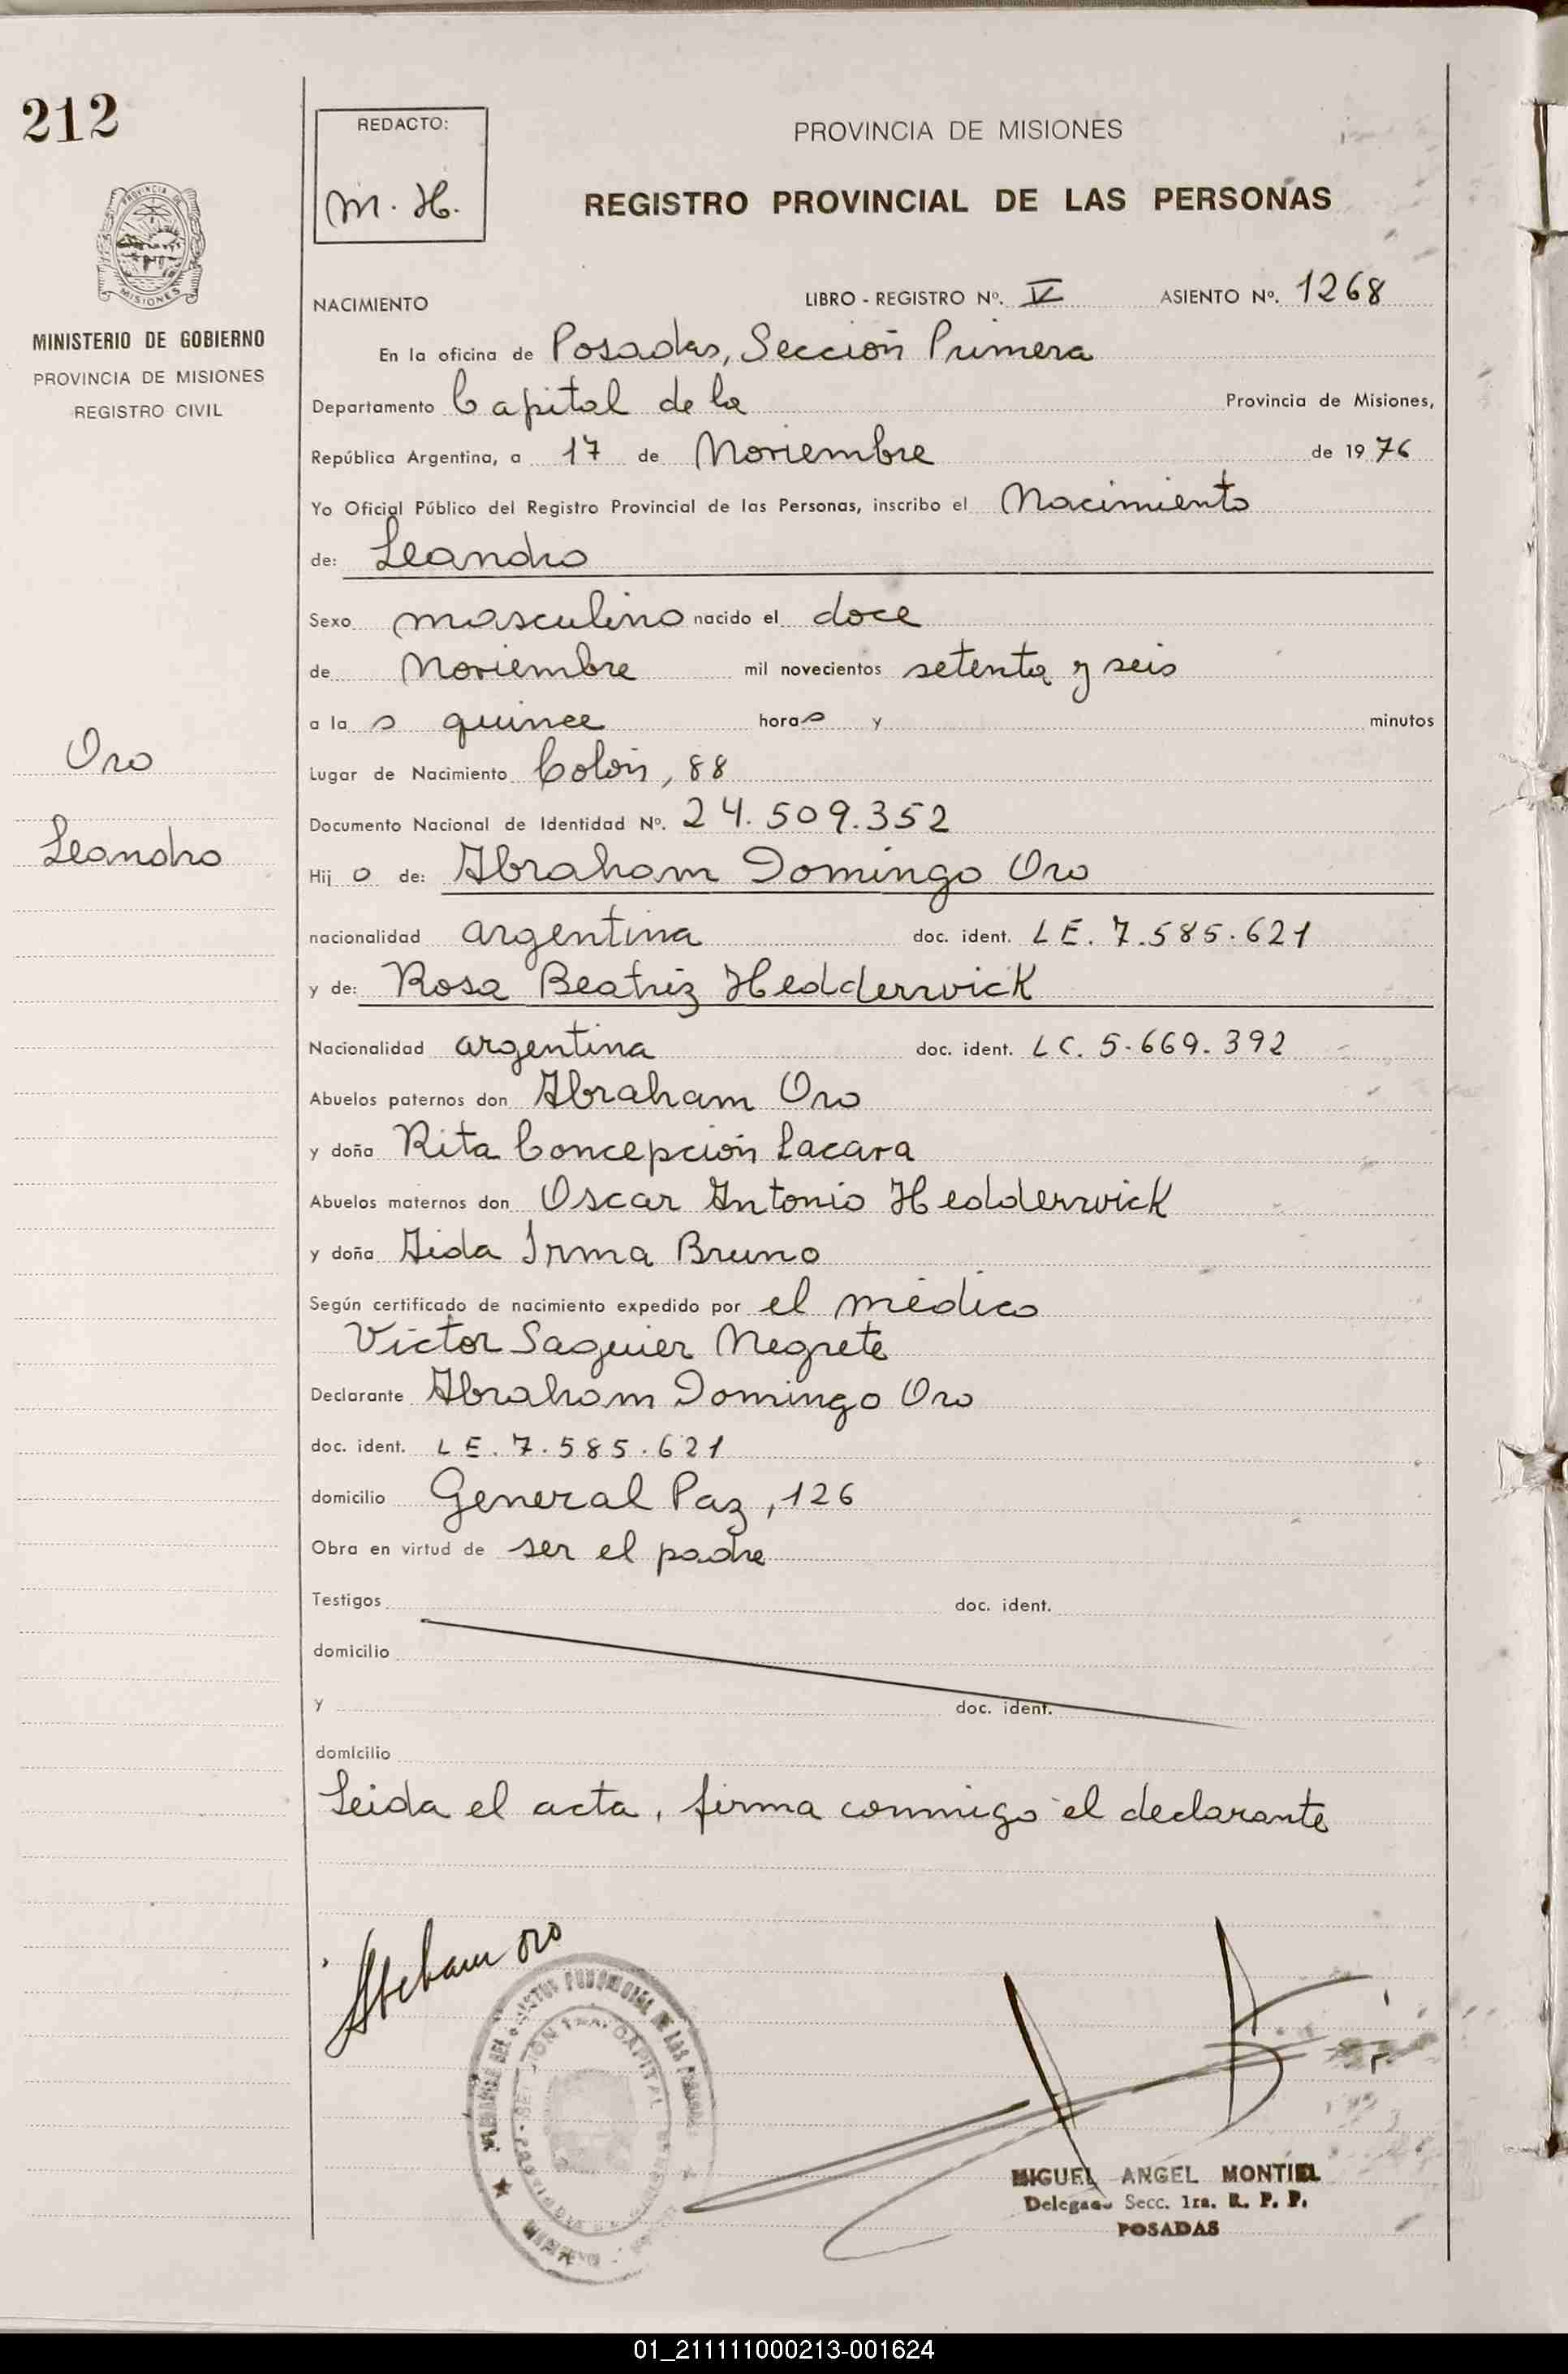 212
REDACTO:
M. H.
PROVINCIA DE MISIONES
REGISTRO PROVINCIAL DE LAS PERSONAS
PROVINCIA DE
MISIONES
MINISTERIO DE GOBIERNO
PROVINCIA DE MISIONES
REGISTRO CIVIL
NACIMIENTO LIBRO - REGISTRO Nº. V ASIENTO Nº. 1268
En la oficina de Posadas, Sección Primera
Departamento Capital de la Provincia de Misiones,
República Argentina, a 17 de Noviembre de 1976
Yo Oficial Público del Registro Provincial de las Personas, inscribo el Nacimiento
de: Leandro
Sexo masculino nacido el doce
de Noviembre mil novecientos setenta y seis
a la s quince horas y minutos
Lugar de Nacimiento Colón, 88
Documento Nacional de Identidad Nº. 24.509.352
Hij o de: Abraham Domingo Oro
nacionalidad argentina doc. ident. LE. 7.585.621
y de: Rosa Beatriz Hedderwick
Nacionalidad argentina doc. ident. LC. 5.669.392
Abuelos paternos don Abraham Oro
y doña Rita Concepción Lacara
Abuelos maternos don Oscar Antonio Hedderwick
y doña Aida Irma Bruno
Según certificado de nacimiento expedido por el médico
Victor Saguier Negrete
Declarante Abraham Domingo Oro
doc. ident. LE. 7.585.621
domicilio General Paz, 126
Obra en virtud de ser el padre
Testigos doc. ident.
domicilio
y doc. ident.
domicilio
Leida el acta, firma conmigo el declarante
Oro
Leandro
Oro
MIGUEL ANGEL MONTIEL
Delegado Secc. 1ra. R. P. P.
POSADAS
01_211111000213-001624